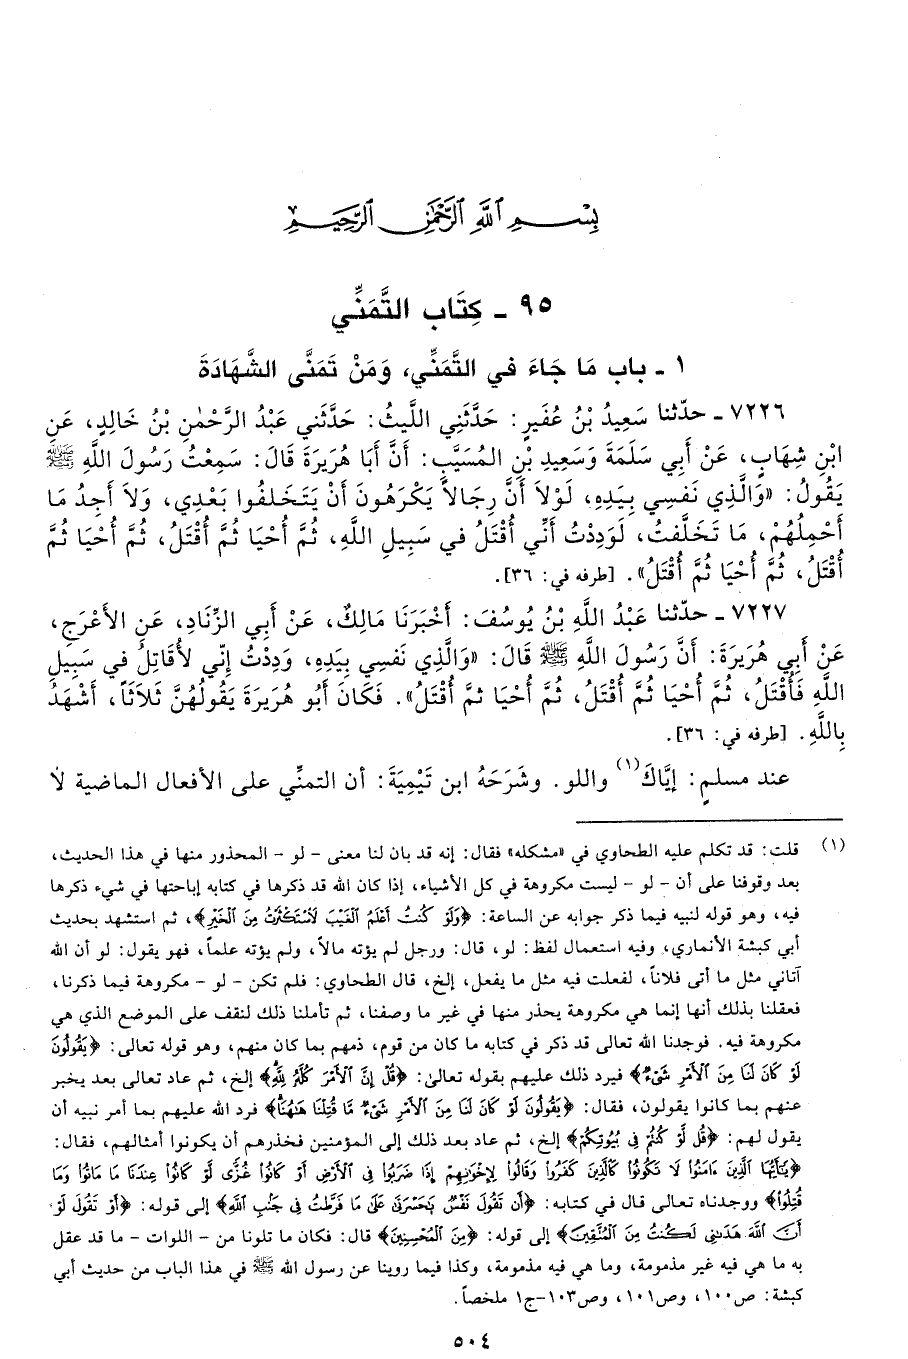 بِسْمِ اللَّهِ الرَّحْمَٰنِ الرَّحِيمِ
٩٥ - كِتَاب التَّمَنِّي
١ - باب مَا جَاءَ في التَّمَنِّي، وَمَنْ تَمَنَّى الشَّهَادَةَ
٧٢٢٦ - حدّثنا سَعِيدُ بْنُ عُفَيرٍ: حَدَّثَنِي اللَّيثُ: حَدَّثَني عَبْدُ الرَّحْمٰنِ بْنُ خَالِدٍ، عَنِ
ابْنِ شِهَابٍ، عَنْ أَبِي سَلَمَةَ وَسَعِيدِ بْنِ المُسَيَّبِ: أَنَّ أَبَا هُرَيرَةَ قَالَ: سَمِعْتُ رَسُولَ اللَّهِ ﷺ
يَقُولُ: «وَالَّذِي نَفْسِي بِيَدِهِ، لَوْلاَ أَنَّ رِجَالاً يَكْرَهُونَ أَنْ يَتَخَلفُوا بَعْدِي، وَلاَ أَجِدُ مَا
أَحْمِلُهُمْ، مَا تَخَلَّفتُ، لَوَدِدْتُ أَنِّي أُقْتَلُ في سَبِيلِ اللَّهِ، ثُمَّ أُحْيَا ثُمَّ أُقْتَلُ، ثُمَّ أُحْيَا ثُمَّ
أُقْتَلُ، ثُمَّ أُحْيَا ثُمَّ أُقْتَلُ». [طرفه في: ٣٦].
٧٢٢٧ - حدّثنا عَبْدُ اللَّهِ بْنُ يُوسُفَ: أَخْبَرَنَا مَالِكٌ، عَنْ أَبِي الزِّنَادِ، عَنِ الأَعْرَجِ،
عَنْ أَبِي هُرَيرَةَ: أَنَّ رَسُولَ اللَّهِ ﷺ قَالَ: «وَالَّذِي نَفْسِي بِيَدِهِ، وَدِدْتُ إِنِّي لأُقَاتِلُ في سَبِيلِ
اللَّهِ فَأُقْتَلُ، ثُمَّ أُحْيَا ثُمَّ أُقْتَلُ، ثُمَّ أُحْيَا ثمَّ أُقْتَلُ». فَكَانَ أَبُو هُرَيرَةَ يَقُولُهُنَّ ثَلاَثَاً، أَشْهَدُ
بِاللَّهِ. [طرفه في: ٣٦].
عند مسلمٍ: إيَّاكَ(١) واللو. وشَرَحَهُ ابن تَيْمِيَةَ: أن التمنِّي على الأفعال الماضية لا
(١) قلت: قد تكلم عليه الطحاوي في «مشكله» فقال: إنه قد بان لنا معنى - لو - المحذور منها في هذا الحديث،
بعد وقوفنا على أن - لو - ليست مكروهة في كل الأشياء، إذا كان الله قد ذكرها في كتابه إباحتها في شيء ذكرها
فيه، وهو قوله لنبيه فيما ذكر جوابه عن الساعة: ﴿وَلَوْ كُنتُ أَعْلَمُ الْغَيْبَ لَاسْتَكْثَرْتُ مِنَ الْخَيْرِ﴾، ثم استشهد بحديث
أبي كبشة الأنماري، وفيه استعمال لفظ: لو، قال: ورجل لم يؤته مالاً، ولم يؤته علماً، فهو يقول: لو أن الله
آتاني مثل ما أتى فلاناً، لفعلت فيه مثل ما يفعل، إلخ، قال الطحاوي: فلم تكن - لو - مكروهة فيما ذكرنا،
فعقلنا بذلك أنها إنما هي مكروهة يحذر منها في غير ما وصفنا، ثم تأملنا ذلك لنقف على الموضع الذي هي
مكروهة فيه. فوجدنا الله تعالى قد ذكر في كتابه ما كان من قوم، ذمهم بما كان منهم، وهو قوله تعالى: ﴿يَقُولُونَ
لَوْ كَانَ لَنَا مِنَ الْأَمْرِ شَيْءٌ﴾ فيرد ذلك عليهم بقوله تعالىٰ: ﴿قُلْ إِنَّ الْأَمْرَ كُلَّهُ لِلَّهِ﴾ إلخ، ثم عاد تعالى بعد يخبر
عنهم بما كانوا يقولون، فقال: ﴿يَقُولُونَ لَوْ كَانَ لَنَا مِنَ الْأَمْرِ شَيْءٌ مَّا قُتِلْنَا هَٰهُنَا﴾ فرد الله عليهم بما أمر نبيه أن
يقول لهم: ﴿قُل لَّوْ كُنتُمْ فِي بُيُوتِكُمْ﴾ إلخ، ثم عاد بعد ذلك إلى المؤمنين فحذرهم أن يكونوا أمثالهم، فقال:
﴿يَٰأَيُّهَا الَّذِينَ ءَامَنُوا لَا تَكُونُوا كَالَّذِينَ كَفَرُوا وَقَالُوا لِإِخْوَانِهِمْ إِذَا ضَرَبُوا فِي الْأَرْضِ أَوْ كَانُوا غُزًّى لَّوْ كَانُوا عِندَنَا مَا مَاتُوا وَمَا
قُتِلُوا﴾ ووجدناه تعالى قال في كتابه: ﴿أَن تَقُولَ نَفْسٌ يَٰحَسْرَتَىٰ عَلَىٰ مَا فَرَّطتُ فِي جَنبِ اللَّهِ﴾ إلى قوله: ﴿أَوْ تَقُولَ لَوْ
أَنَّ اللَّهَ هَدَىٰنِي لَكُنتُ مِنَ الْمُتَّقِينَ﴾ إلى قوله: ﴿مِنَ الْمُحْسِنِينَ﴾ قال: فكان ما تلونا من - اللوات - ما قد عقل
به ما هي فيه غير مذمومة، وما هي فيه مذمومة، وكذا فيما روينا عن رسول الله ﷺ في هذا الباب من حديث أبي
كبشة: ص١٠٠، وص١٠١، وص١٠٣-ج١ ملخصاً.
٥٠٤